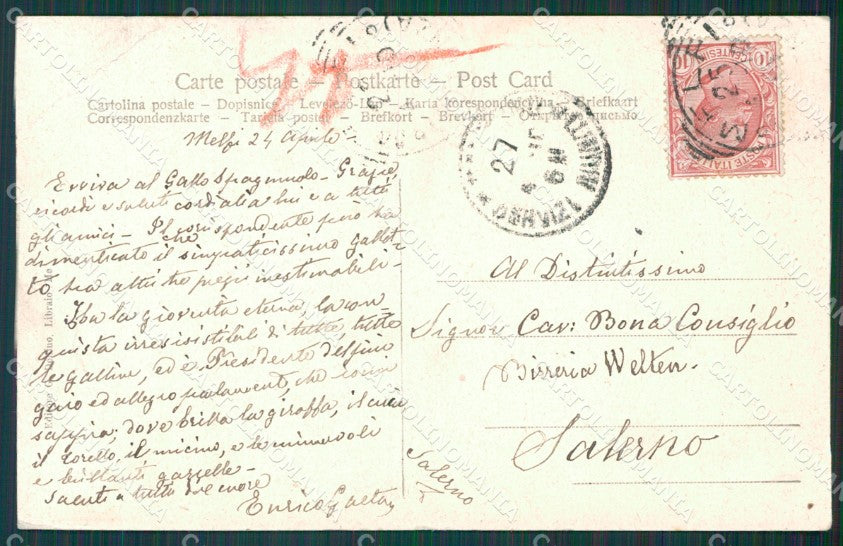 Carte postale – Postkarte – Post Card
Cartolina postale – Dopisnica – Levelező-Lap – Karta korespondencyjna – Briefkaart
Correspondenzkarte – Tarjeta postal – Brefkort – Brevkort – Открытое письмо
Melfi 24 Aprile
Evviva al Gallo Spagnuolo – Grazie,
ricordi e saluti cordiali a lui e a tutti
gli amici – Il corrispondente però ha
dimenticato che il simpaticissimo gallet-
to ha altri tre pregii inestimabili –
Ha la gioventù eterna, la con
quista irresistibile di tutte, tutte
le galline, ed è Presidente del più
gaio ed allegro parlamento, che
dove brilla la giraffa, il
il micino, e le
e brillanti gazzelle –
Saluti a tutti di cuore
Enrico Gaeta
Al Distintissimo
Signor Cav: Bona Consiglio
Birreria Welten.
Salerno
Salerno
27
POSTE ITALIANE
10
10
CENTESIMI
25
CARTOLINOMANIA